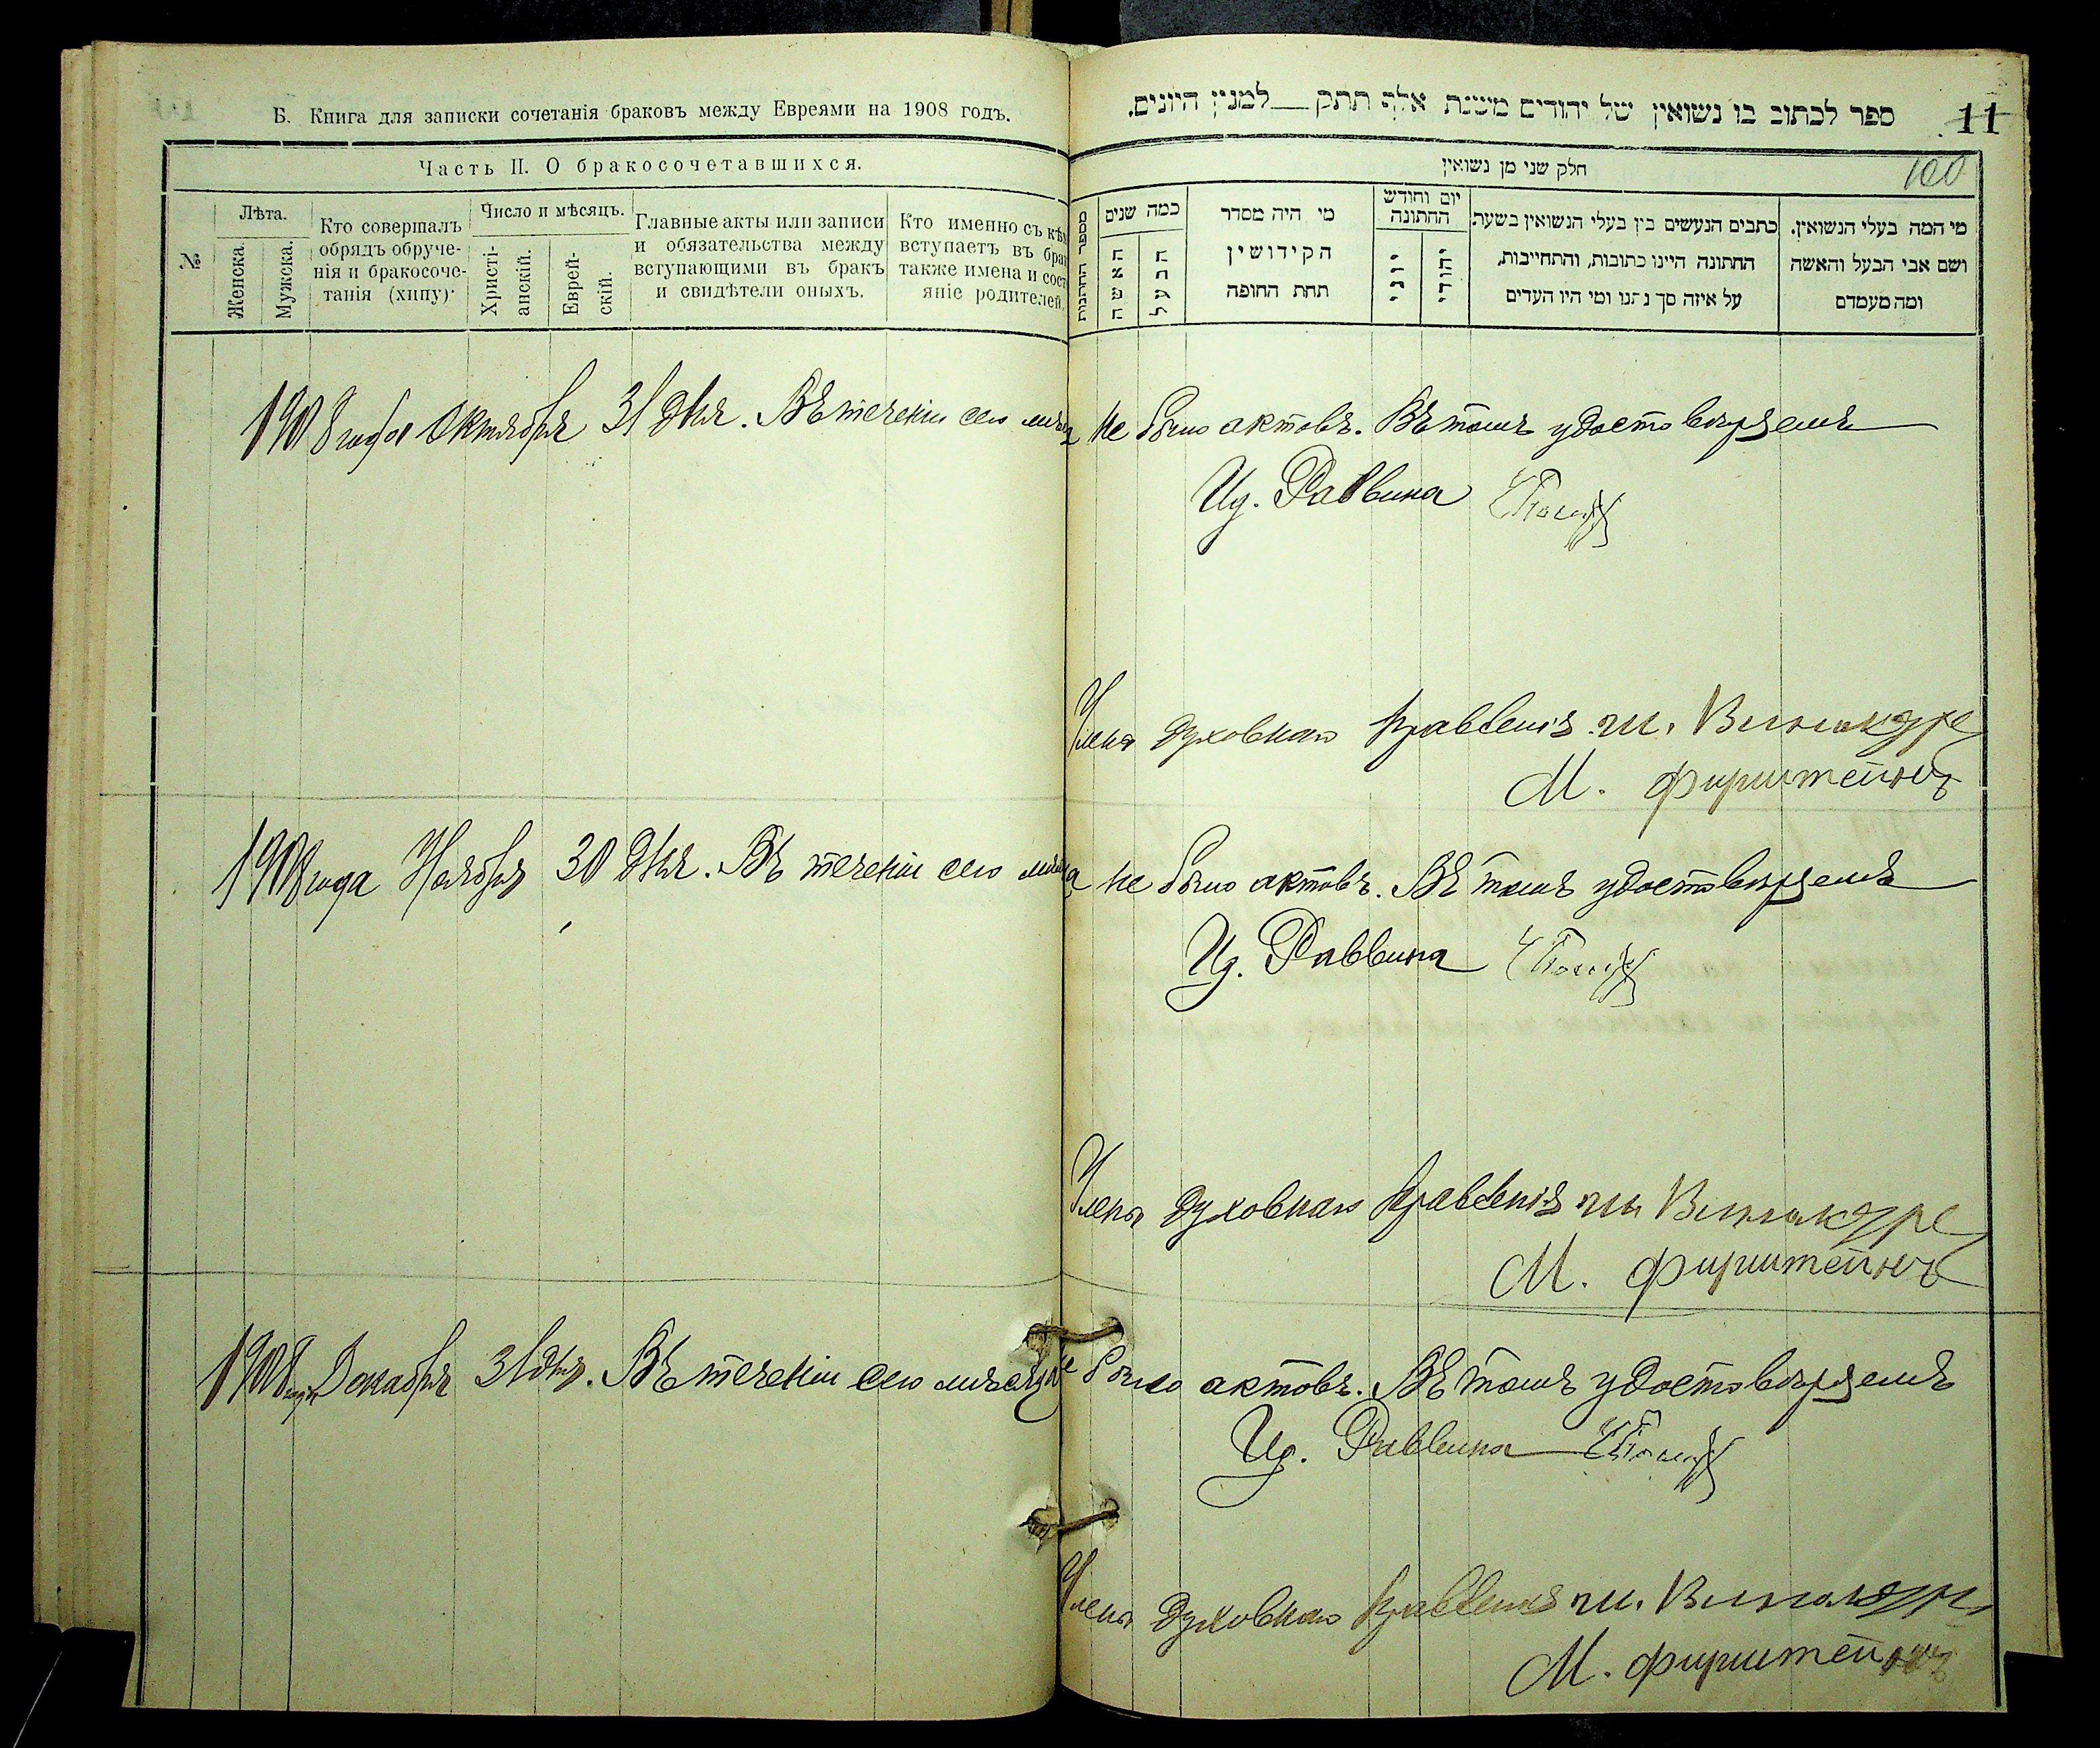 Б. Книга для записки сочетанія браковъ между Евреями на 1908 годъ.
Часть II. О бракосочетавшихся.
№
Лѣта.
Женска.
Мужска.
Кто совершалъ
обрядъ обруче-
нія и бракосоче-
танія (хипу)
Число и мѣсяцъ.
Христі-
анскій.
Еврей-
скій.
Главные акты или записи
и обязательства между
вступающими въ бракъ
и свидѣтели оныхъ.
Кто именно съ кѣмъ
вступаетъ въ бракъ
также имена и сост
яніе родителей
ספר לכתוב בו נשואין של יהודים משנת אלף תתק למנין היונים.
11
100
חלק שני מן נשואין
מספר החתונות
כמה שנים
האשה
הבעל
מי היה מסדר
הקידושין
תחת החופה
יום וחודש
החתונה
יוני
יהודי
כתבים הנעשים בין בעלי הנשואין בשעת
החתונה היינו כתובות, והתחייבות,
על איזה סך נתנו ומי היו העדים
מי המה בעלי הנשואין.
ושם אבי הבעל והאשה
ומה מעמדם
1908 года Октября 31 дня. Въ теченіи сего мѣсяца не было актовъ. Въ томъ удостовѣряемъ
Ид. Раввина
Члены духовнаго правленія Ш. Винокуръ
М. Фириштейнъ
1908 года Ноября 30 дня. Въ теченіи сего мѣсяца не было актовъ. Въ томъ удостовѣряемъ
Ид. Раввина
Члены духовнаго правленія Ш. Винокуръ
М. Фириштейнъ
1908 года Декабря 31 дня. Въ теченіи сего мѣсяца не было актовъ. Въ томъ удостовѣряемъ
Ид. Раввина
Члены духовнаго правленія Ш. Винокуръ
М. Фириштейнъ